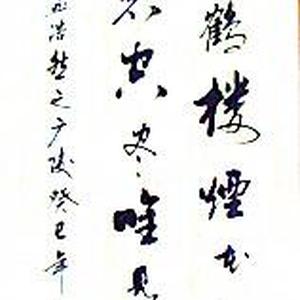 鹤楼煙花
空尽唯見
浩然之广陵癸巳年